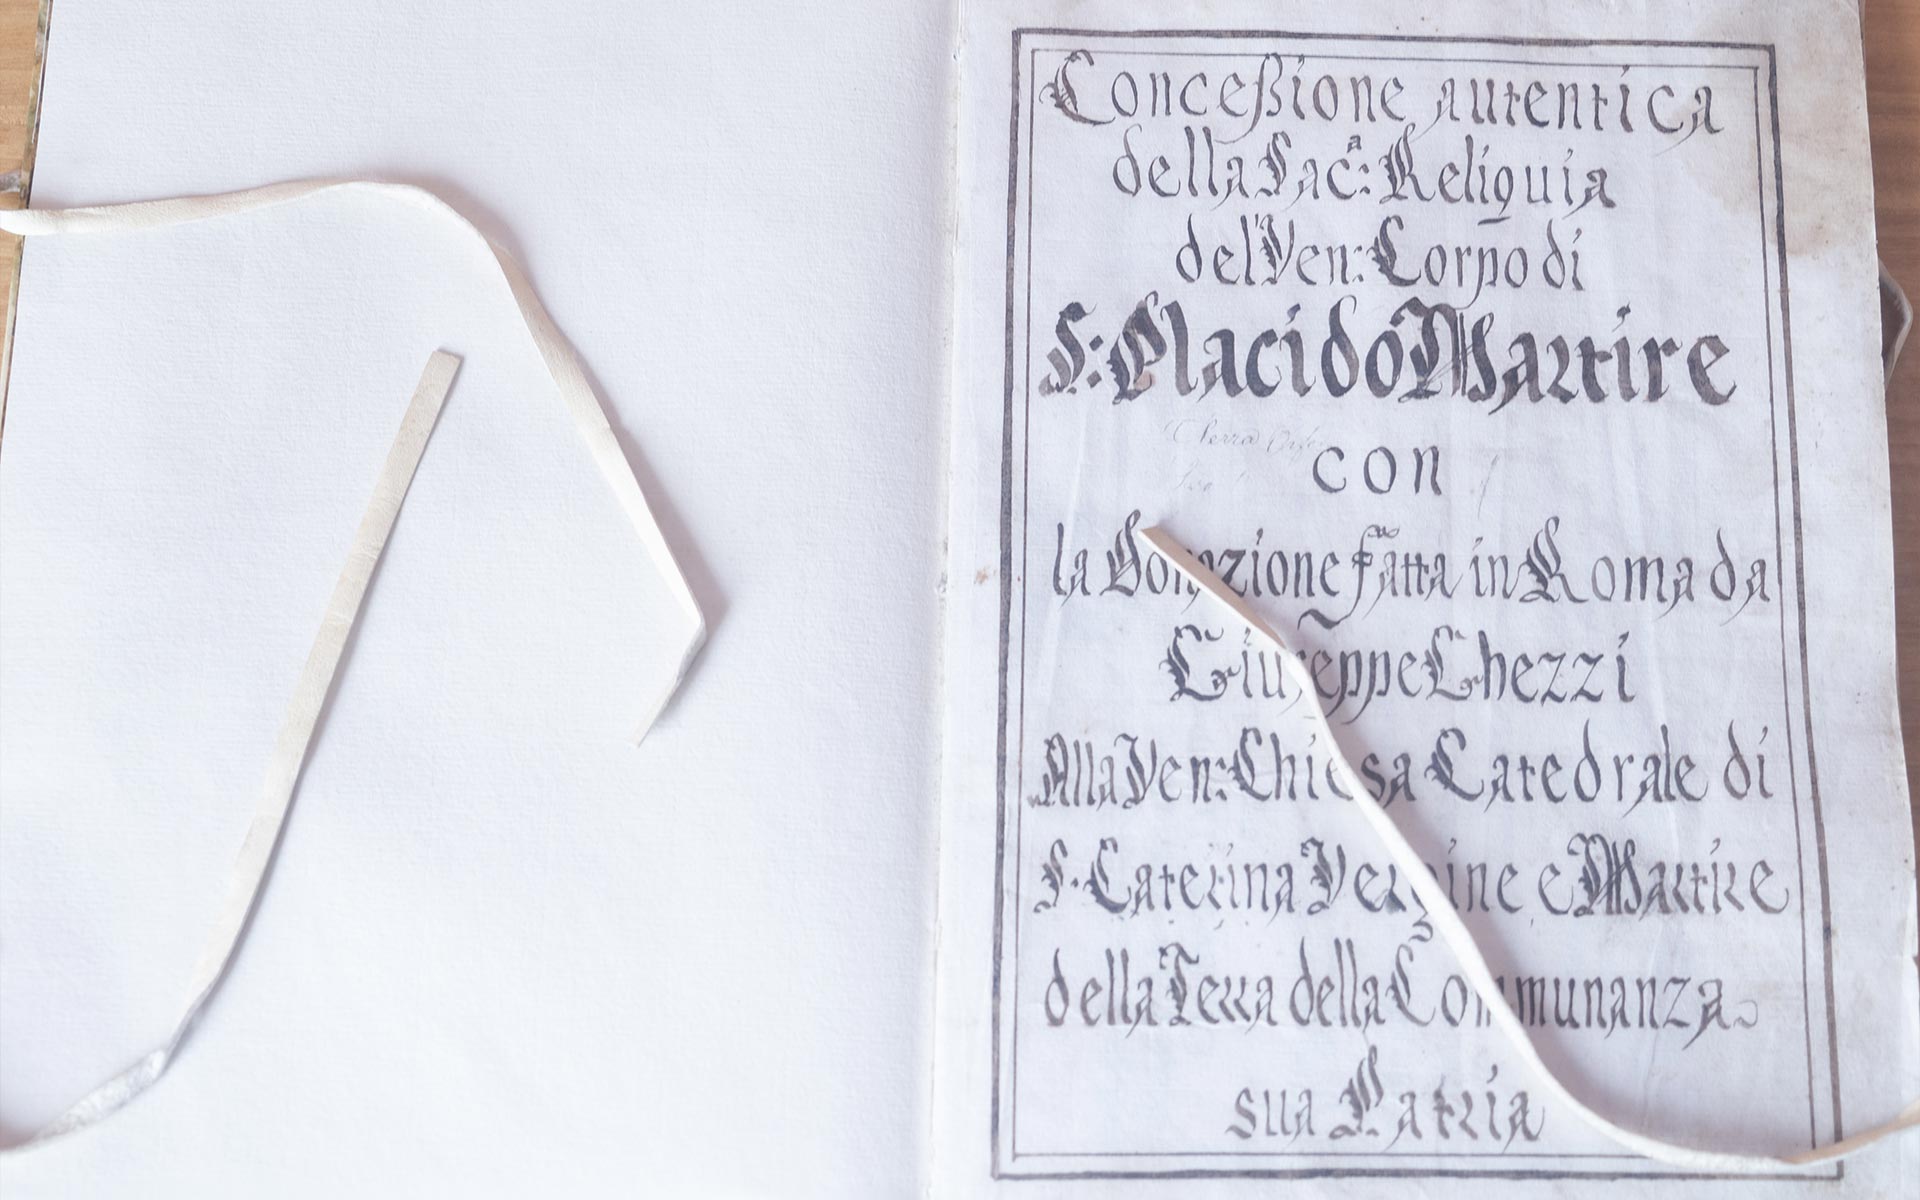 Conceßione autentica
della Sac.ª: Reliquia
del Ven: Corpo di
S: Placido Martire
con
la Donazione fatta in Roma da
Giuseppe Ghezzi
Alla Ven: Chiesa Catedrale di
S. Caterina Vergine e Martire
della Terra della Communanza
sua Patria